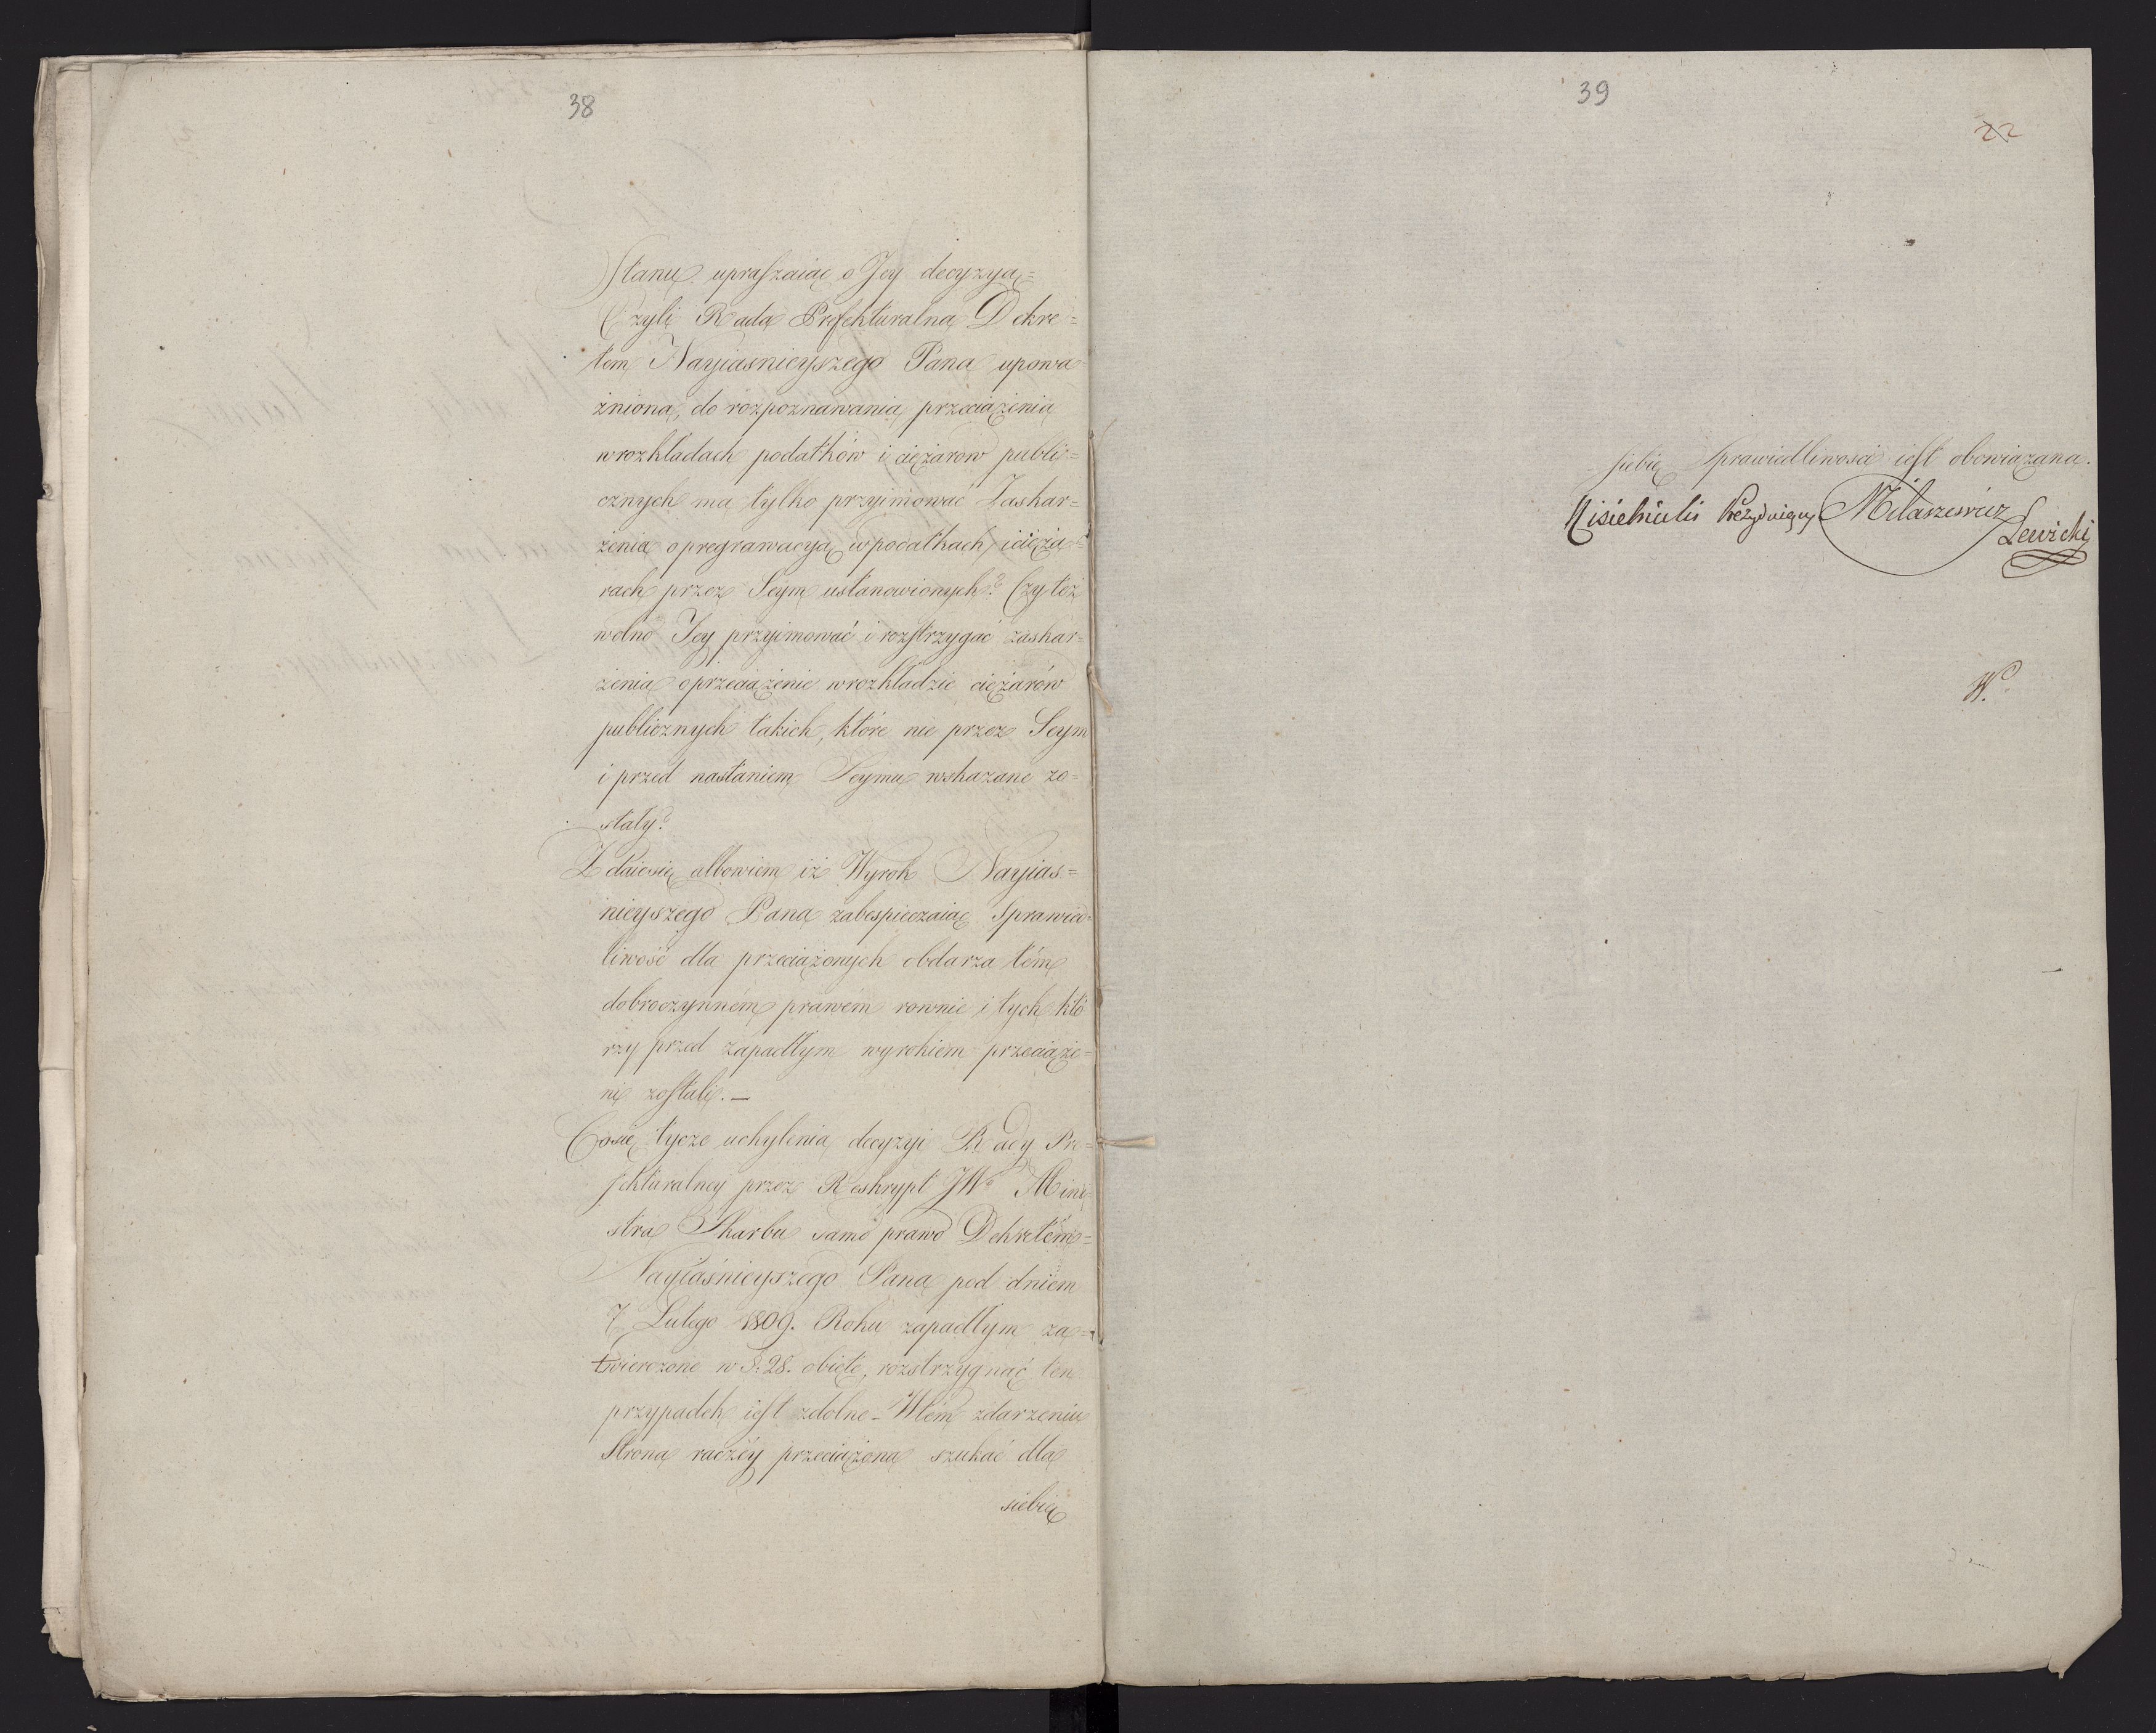 38
Stanu upraszaiąc o Jey decyzyą=
Czyli Rada Prefekturalna Dekre=
tem Nayiasnieyszego Pana upowa
żniona, do rozpoznawania przeciążenia
w rozkładach podatków i ciężarów publi=
cznych ma tylko przyjmować Zaskar=
żenia o pregrawacyą w podatkach, i cięża=
rach przez Seym ustanowionych? Czy też
wolno Jey przyimować i rozstrzygać zaskar=
żenia o przeciążenie w rozkładzie ciężarów
publicznych takich, które nie przez Seym
i przed nastaniem Seymu wskazane zo=
stały?
Zdaie się albowiem iż Wyrok Nayias=
nieyszego Pana zabespieczaiąc Sprawied=
liwość dla przeciążonych obdarza tém
dobroczynném prawém rownie i tych któ
rzy przed zapadłym wyrokiem przeciąże=
ni zostali. —
Co się tycze uchylenia decyzyi Rady Pre=
fekturalney przez Reskrypt JWo Mini=
stra Skarbu samo prawo Dekretém=
Nayiaśnieyszego Pana pod dniem
7 Lutego 1809. Roku zapadłym za=
twierdzone w §: 28. obięte, rozstrzygnąć ten
przypadek iest zdolne – W tém zdarzeniu
Strona raczéy przeciążona szukać dla
siebie
39
22
siebie Sprawiedliwości iest obowiązana.
Prezyduiący Milaszewicz
Lewicki
W.